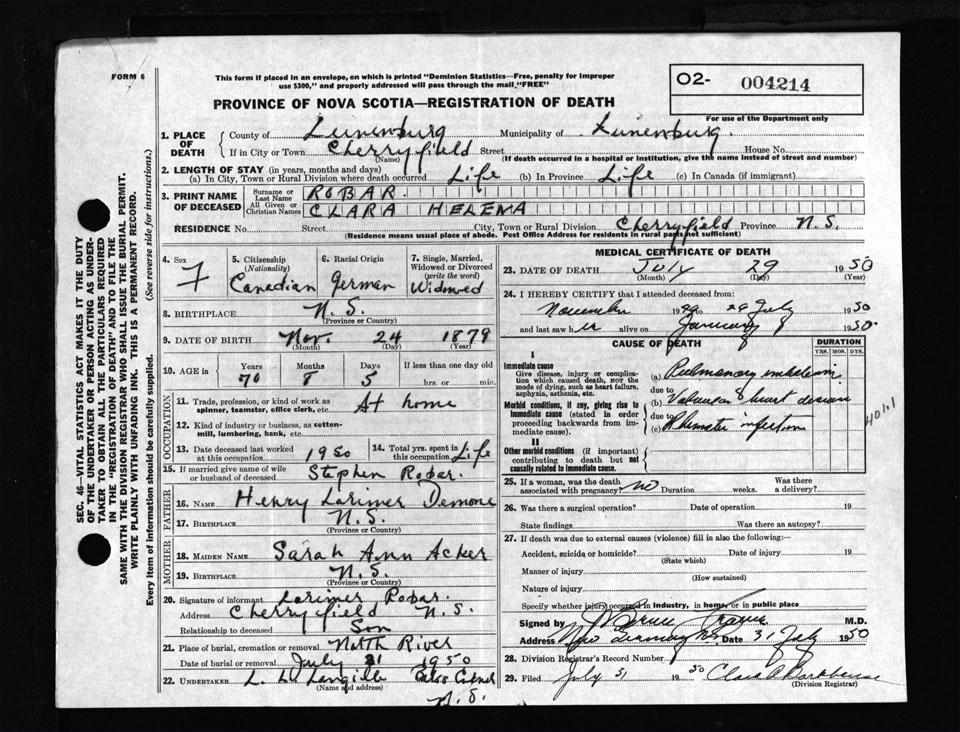 FORM 6
This form if placed in an envelope, on which is printed "Dominion Statistics—Free, penalty for improper
use $300," and properly addressed will pass through the mail "FREE"
O2- 004214
PROVINCE OF NOVA SCOTIA—REGISTRATION OF DEATH
For use of the Department only
1. PLACE OF DEATH
County of Lunenburg Municipality of Lunenburg.
If in City or Town Cherryfield Street House No.
(Name) (If death occurred in a hospital or institution, give the name instead of street and number)
2. LENGTH OF STAY (in years, months and days)
(a) In City, Town or Rural Division where death occurred Life (b) In Province Life (c) In Canada (if immigrant)
3. PRINT NAME OF DECEASED
Surname or Last Name ROBAR.
All Given or Christian Names CLARA HELEMA
RESIDENCE No. Street City, Town or Rural Division Cherryfield Province N.S.
(Residence means usual place of abode. Post Office Address for residents in rural parts not sufficient)
4. Sex F
5. Citizenship (Nationality) Canadian
6. Racial Origin German
7. Single, Married, Widowed or Divorced (write the word) Widowed
8. BIRTHPLACE N.S.
(Province or Country)
9. DATE OF BIRTH Nov. 24 1879
(Month) (Day) (Year)
10. AGE in Years Months Days If less than one day old
70 8 5 hrs. or min.
OCCUPATION
11. Trade, profession, or kind of work as spinner, teamster, office clerk, etc. At home
12. Kind of industry or business, as cotton-mill, lumbering, bank, etc.
13. Date deceased last worked at this occupation 1950
14. Total yrs. spent in this occupation Life
15. If married give name of wife or husband of deceased Stephen Robar.
FATHER
16. NAME Henry Lorimer Demone
17. BIRTHPLACE N.S.
(Province or Country)
MOTHER
18. MAIDEN NAME Sarah Ann Acker
19. BIRTHPLACE N.S.
(Province or Country)
20. Signature of informant Lorimer Robar.
Address Cherryfield N.S.
Relationship to deceased Son
21. Place of burial, cremation or removal North River
Date of burial or removal July 31 1950
22. UNDERTAKER L. L. Langille
(Name and address)
N.S.
MEDICAL CERTIFICATE OF DEATH
23. DATE OF DEATH July 29 1950
(Month) (Day) (Year)
24. I HEREBY CERTIFY that I attended deceased from:
November 1949 to 29 July 1950
and last saw her alive on January 8 1950.
CAUSE OF DEATH DURATION
YRS. MOS. DYS.
I
Immediate cause
Give disease, injury or complication which caused death, NOT the mode of dying, such as heart failure, asphyxia, asthenia, etc.
(a) Pulmonary embolism
due to
Morbid conditions, if any, giving rise to immediate cause (stated in order proceeding backwards from immediate cause).
(b) Valvular heart disease
due to
(c) Rheumatic infection
401.1
II
Other morbid conditions (if important) contributing to death but not causally related to immediate cause.
25. If a woman, was the death associated with pregnancy? No Duration weeks. Was there a delivery?
26. Was there a surgical operation? Date of operation 19
State findings Was there an autopsy?
27. If death was due to external causes (violence) fill in also the following:—
Accident, suicide or homicide? Date of injury 19
(State which)
Manner of injury
(How sustained)
Nature of injury
Specify whether injury occurred in industry, in home, or in public place
Signed by M.D.
Address New Germany N.S. Date 31 July 1950
28. Division Registrar's Record Number 8
29. Filed July 31 1950 Clara
(Division Registrar)
SEC. 46—VITAL STATISTICS ACT MAKES IT THE DUTY
OF THE UNDERTAKER OR PERSON ACTING AS UNDER-
TAKER TO OBTAIN ALL THE PARTICULARS REQUIRED
IN THE "REGISTRATION OF DEATH" AND TO FILE THE
SAME WITH THE DIVISION REGISTRAR WHO SHALL ISSUE THE BURIAL PERMIT.
WRITE PLAINLY WITH UNFADING INK. THIS IS A PERMANENT RECORD.
Every item of information should be carefully supplied. (See reverse side for instructions.)